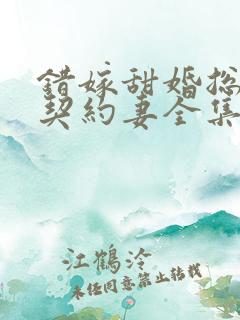 錯嫁甜婚總
契約妻全集
江鶴泠
未经同意禁止转载